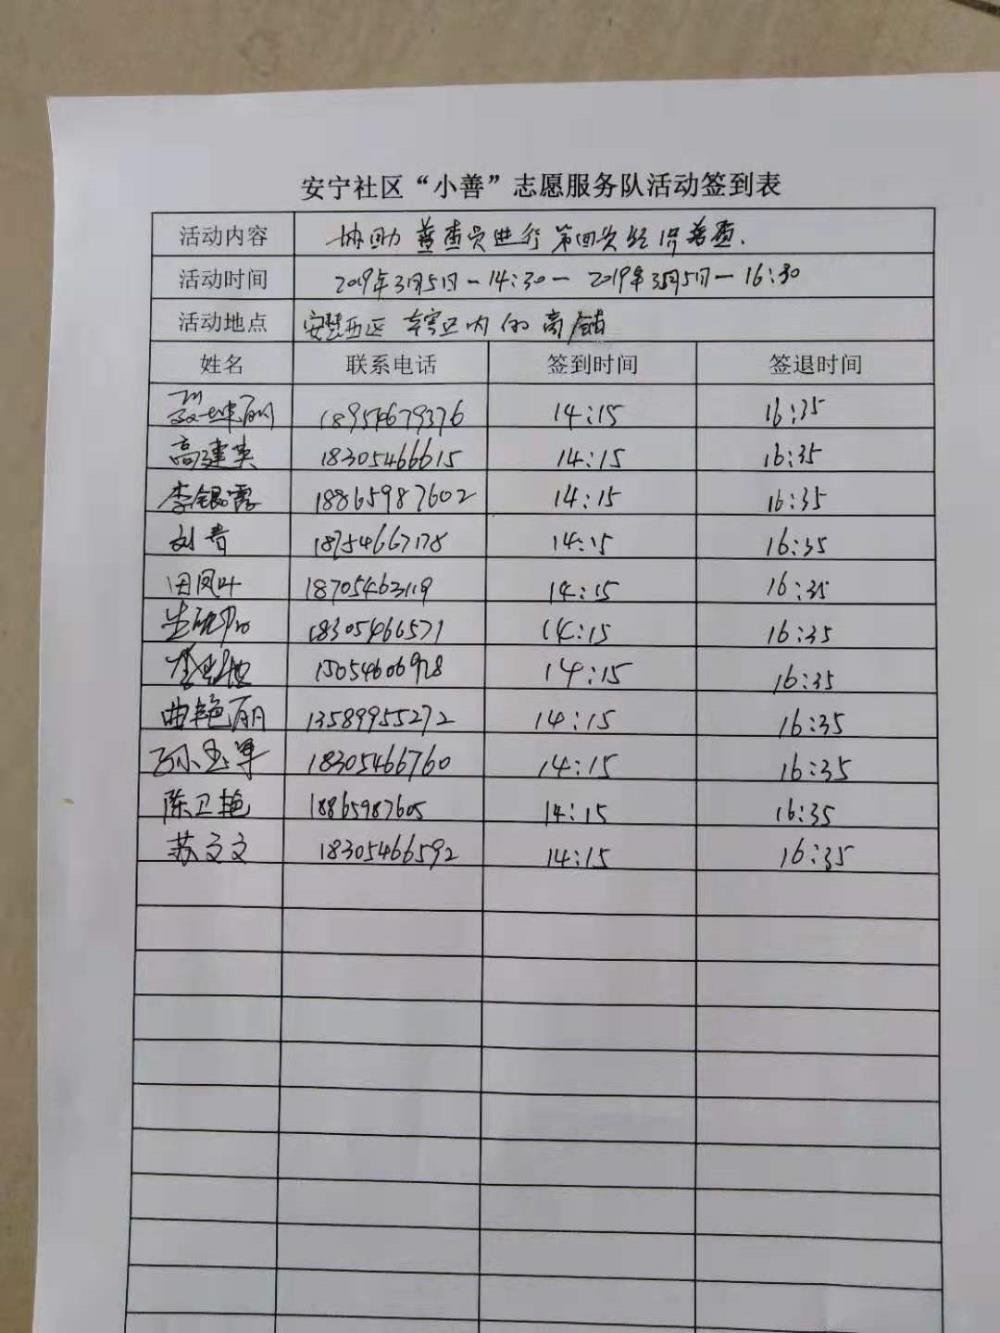 安宁社区“小善”志愿服务队活动签到表
活动内容 协助普查员进行第四次经济普查.
活动时间 2019年3月5日－14:30－2019年3月5日－16:30
活动地点 安慧西区辖区内的商铺
姓名 联系电话 签到时间 签退时间
14:15 16:35
高建英 18305466615 14:15 16:35
李银霞 18865987602 14:15 16:35
刘青 18754667178 14:15 16:35
田凤叶 18705463119 14:15 16:35
18305466571 14:15 16:35
15054606928 14:15 16:35
曲艳丽 13589955272 14:15 16:35
孙玉军 18305466760 14:15 16:35
陈卫艳 18865987605 14:15 16:35
苏文文 18305466592 14:15 16:35